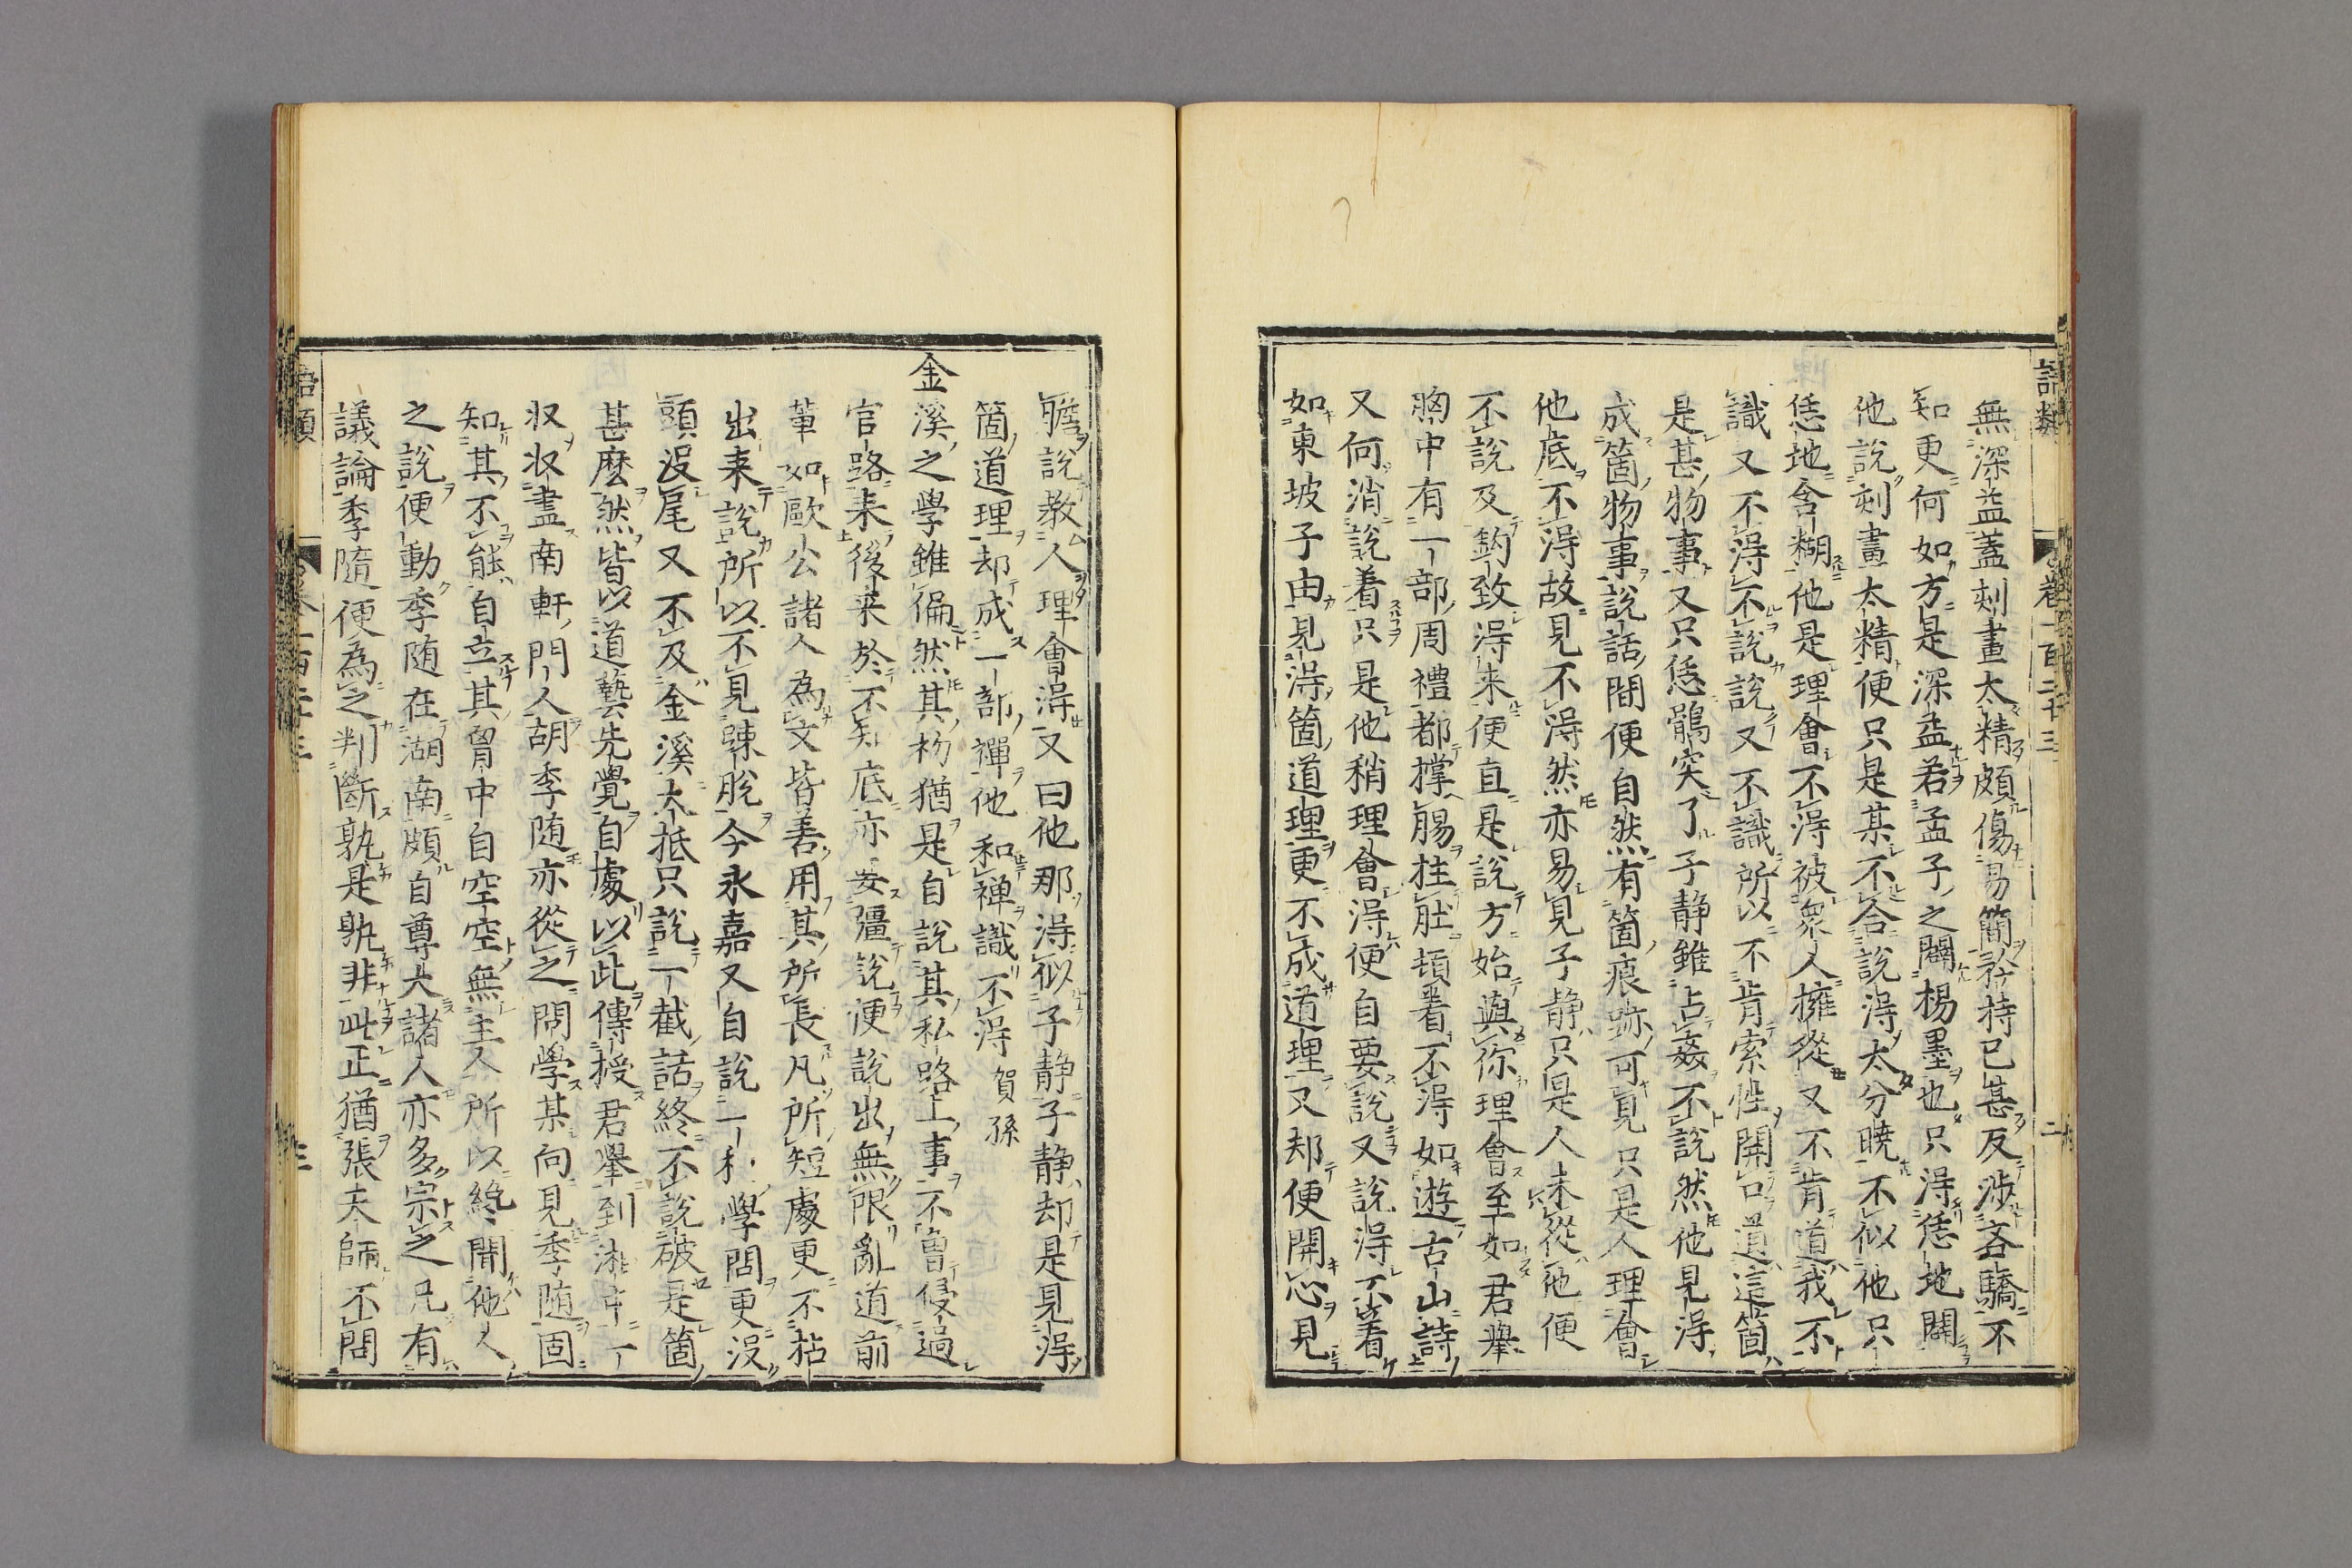 語類 卷一百二十三 二
無深益蓋刻畫太精頗傷易簡矜持已甚反涉吝驕不
知更何如方是深益若孟子之闢楊墨也只得恁地闢
他說刻畫太精便只是某不合說得太分曉不似他只
恁地含糊他是理會不得被衆人擁從又不肯道我不
識又不得不說說又不識所以不肯索性開口道這箇
是甚物事又只恁鶻突了子静雖占姦不說然他見得
成箇物事說話間便自然有箇痕跡可見只是人理會
他底不得故見不得然亦易見子静只是人未從他便
不說及鈎致得来便直是說方始與你理會至如君舉
胸中有一部周禮都撑腸拄肚頓着不得如遊古山詩
又何消說着只是他稍理會得便自要說又說得不着
如東坡子由見得箇道理更不成道理又却便開心見
膽說教人理會得又曰他那得似子静子静却是見得
箇道理却成一部禪他和禅識不得 賀孫
金溪之學雖偏然其初猶是自說其私路上事不曾侵過
官路来後来於不知底亦要彊說便說出無限亂道前
軰如歐公諸人為文皆善用其所長凡所短處更不拈
出来說所以不見踈脫今永嘉又自說一種學問更沒
頭沒尾又不及金溪大抵只說一截話終不說破是箇
甚麽然皆以道藝先覺自處以此傳授君舉到湘中一
収収盡南軒門人胡季随亦從之問學某向見季随固
知其不能自立其胷中自空空無主人所以纔聞他人
之說便動季随在湖南頗自尊大諸人亦多宗之凡有
議論季隨便為之判斷孰是孰非此正猶張天師不問
卷一百二十三 三